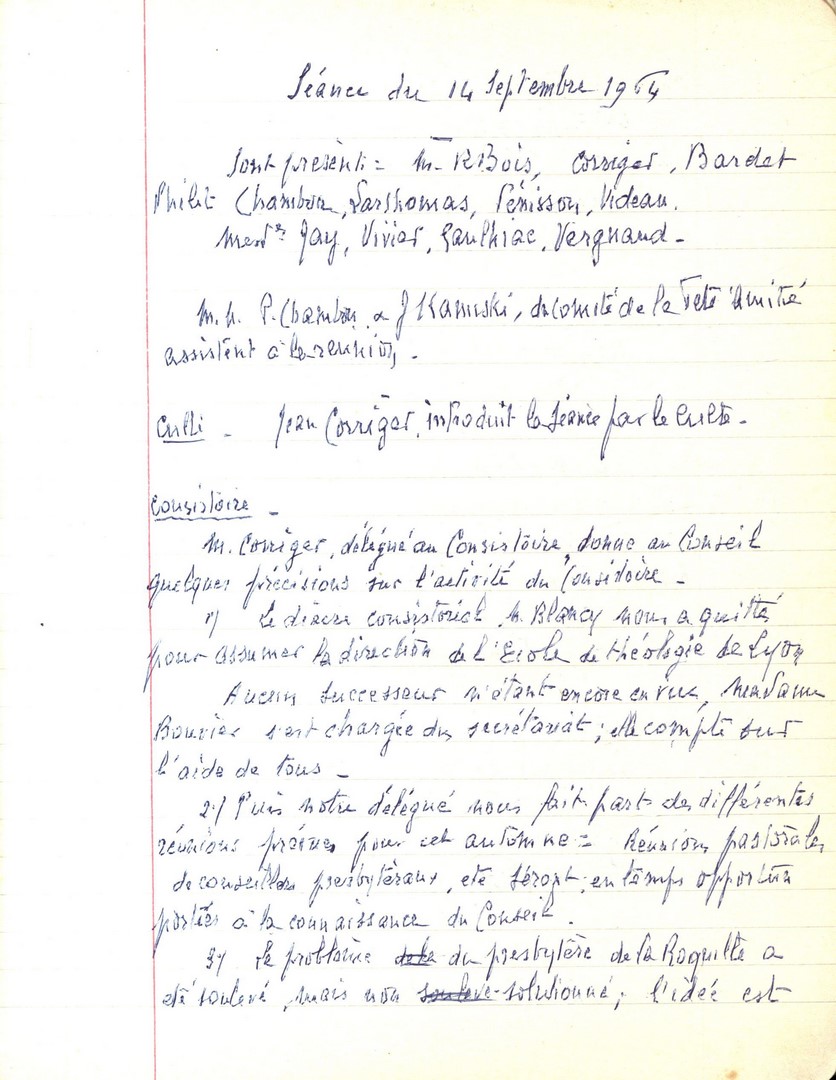 Séance du 14 Septembre 1964
Sont présents = M. R Bois, Corriger, Bardet
Philit Chambon, Larthomas, Pénisson, Videau.
Mesd<sup>es</sup> Gay, Vivier, Gauthiac, Vergnaud -
M.M. P. Chambon & J Kamiski, du comité de la Fete Amitié
assistent à la reunion, -
Culte - Jean Corriger, introduit la séance par le culte -
Consistoire -
M. Corriger, délégué au Consistoire, donne au Conseil
quelques précisions sur l'activité du Consistoire -
1) Le diacre consistorial, M. Blancy nous a quittés
pour assumer la direction de l'Ecole de théologie de Lyon
Aucun successeur n'étant encore en vue, Madame
Bouvier s'est chargée du secrétariat; elle compte sur
l'aide de tous -
2°/ Puis notre délégué nous fait part des différentes
réunions prévues pour cet automne = Réunions pastorales,
de conseillers presbytéraux, etc seront, en temps opportun
portées à la connaissance du Conseil.
3°/ Le problème de la du presbytère de la Roquille a
été soulevé, mais non soulevé solutionné; l'idée est